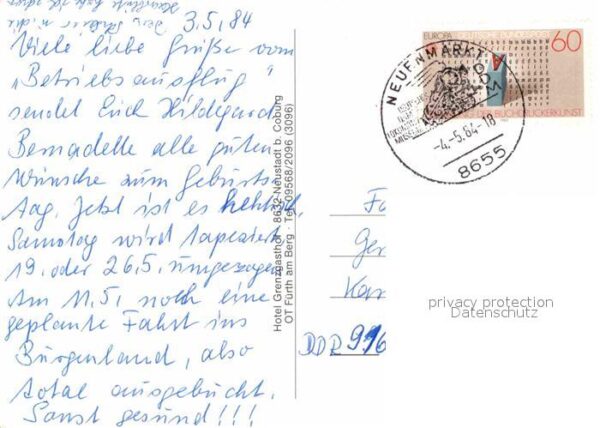 3.5.84
Viele liebe Grüße vom
„Betriebsausflug"
sendet Euch Hildegard
Bernadette alle guten
Wünsche zum Geburts-
tag. Jetzt ist es
Samstag wird tapeziert
19. oder 26.5. umgezogen
Am 11.5. noch eine
geplante Fahrt ins
Burgenland, also
total ausgebucht.
Sonst gesund!!!
Hotel Grenzgasthof · 8632 Neustadt b. Coburg
OT Fürth am Berg · Tel. 09568/2096 (3096)
EUROPA DEUTSCHE BUNDESPOST
60
BUCHDRUCKERKUNST
NEUENMARKT
-4.-5.84-18
8655
Ger
Kar
DDR 996
privacy protection
Datenschutz